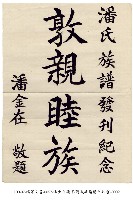 潘氏族譜發刊紀念
敦親睦族
潘金在 敬題